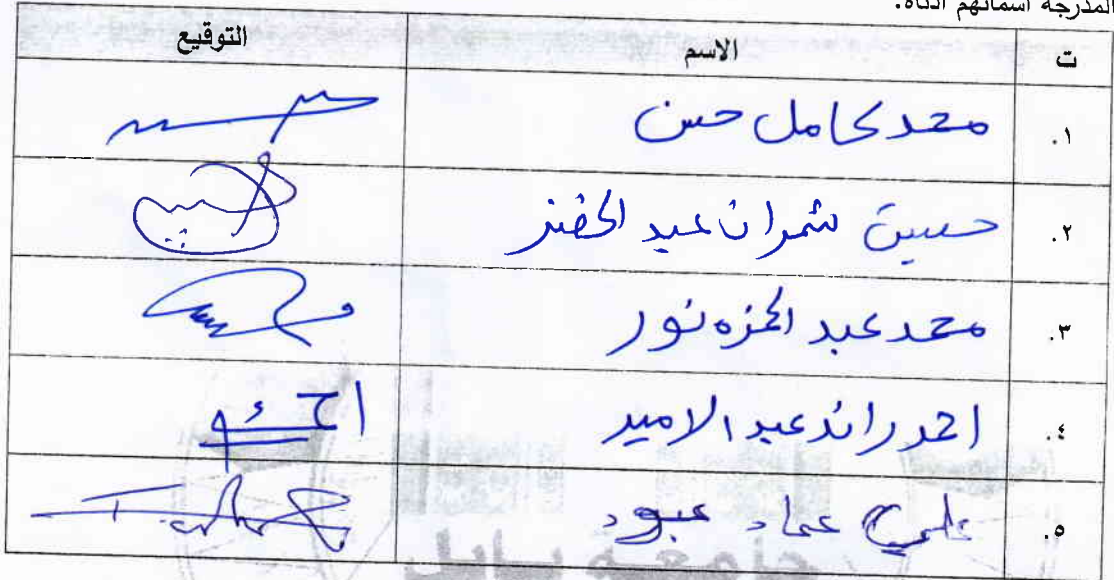 المدرجة اسمائهم ادناه.
ت الاسم التوقيع
١. محمد كامل حسن
٢. حسين شمران عبد الخضر
٣. محمد عبد الحمزه نور
٤. احمد رائد عبد الامير
٥. علي عماد عبود
جامعة بابل